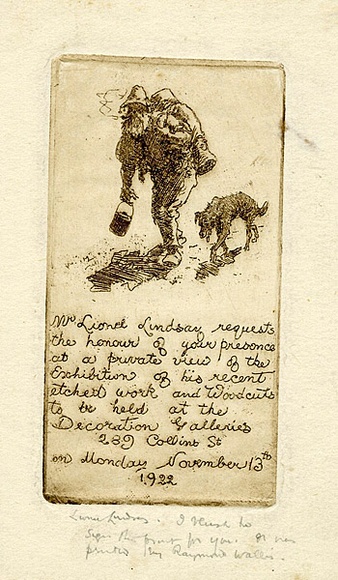 Mr Lionel Lindsay requests
the honour of your presence
at a private view of the
Exhibition of his recent
etched work and Woodcuts
to be held at the
Decoration Galleries
289 Collins St
on Monday November 13th
1922
Lionel Lindsay. I to
sign the print for you. It was
printed by Raymond Wallis.